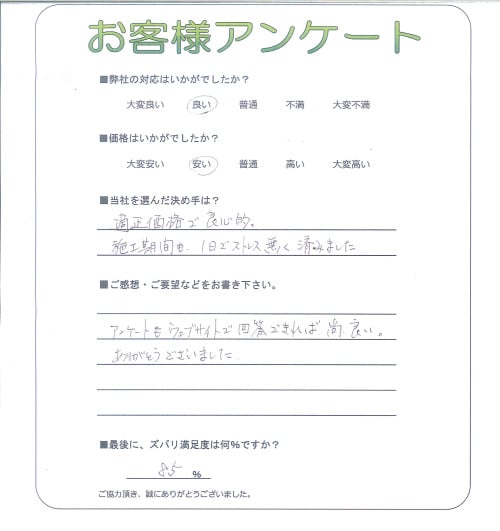 お客様アンケート
■弊社の対応はいかがでしたか?
大変良い 良い 普通 不満 大変不満
■価格はいかがでしたか?
大変安い 安い 普通 高い 大変高い
■当社を選んだ決め手は?
適正価格で良心的。
施工期間も、1日でストレス無く済みました
■ご感想・ご要望などをお書き下さい。
アンケートもウェブサイトで回答できれば尚良い。
ありがとうございました
■最後に、ズバリ満足度は何%ですか?
85 %
ご協力頂き、誠にありがとうございました。